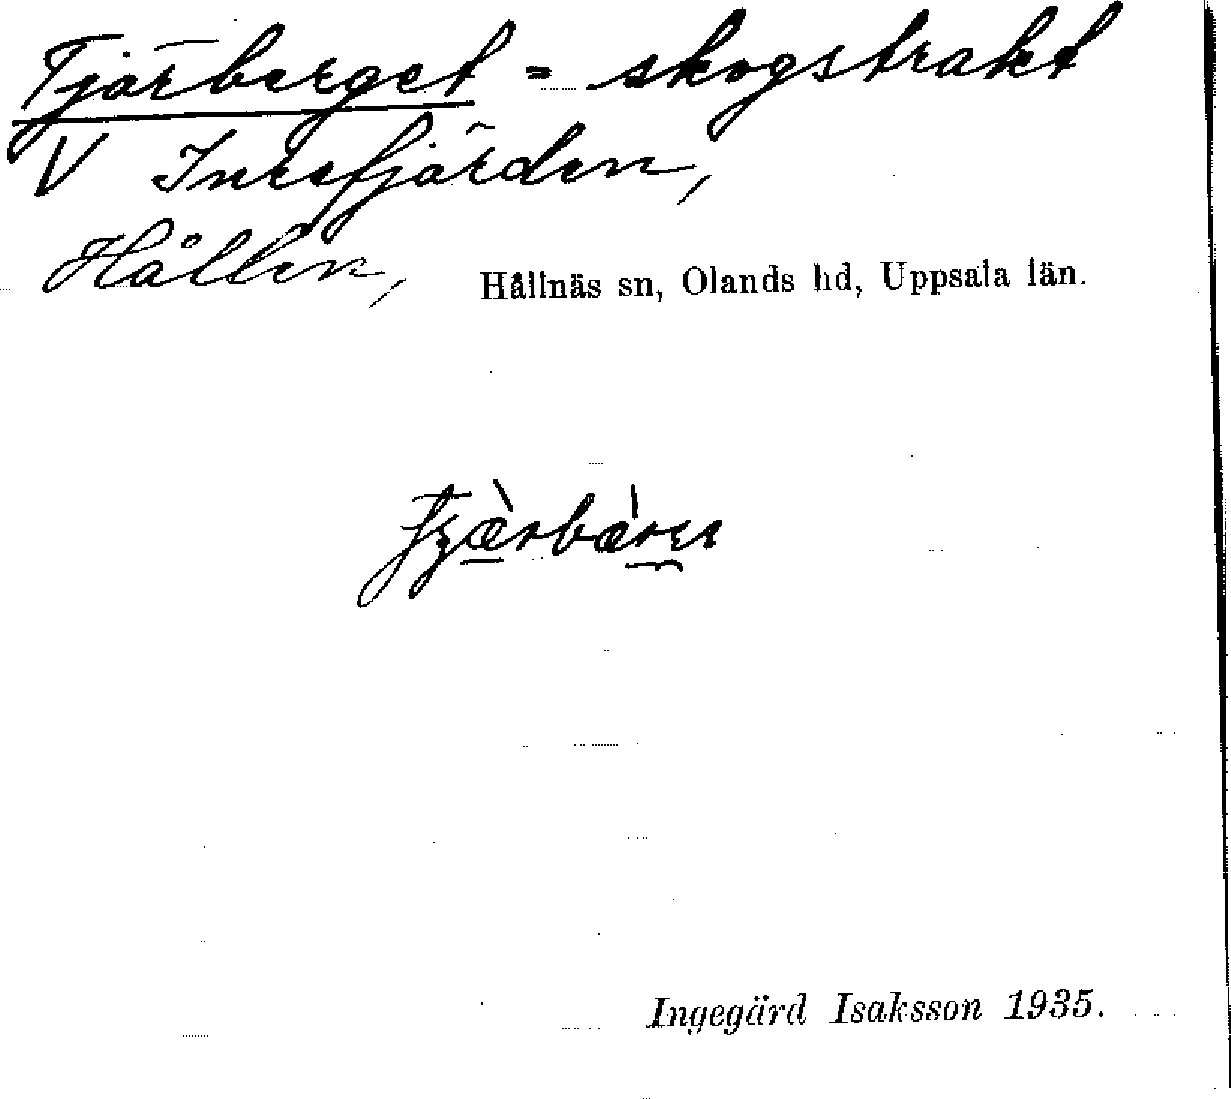 Tjärberget = skogstrakt
V Inrefjärden,
Hållen, Hållnäs sn, Olands hd, Uppsala län.
Ingegärd Isaksson 1935.